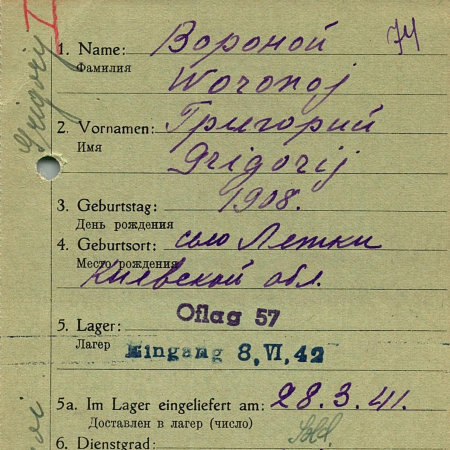 Grigorij I
74
1. Name: Вороной
Фамилия
Woronoj
2. Vornamen: Григорий
Имя
Grigorij
3. Geburtstag: 1908.
День рождения
4. Geburtsort: село Летки
Место рождения
Киевской обл.
Oflag 57
5. Lager:
Лагерь
Eingang 8. VI. 42
5a. Im Lager eingeliefert am: 28.3.41.
Доставлен в лагерь (число)
6. Dienstgrad: Sold.